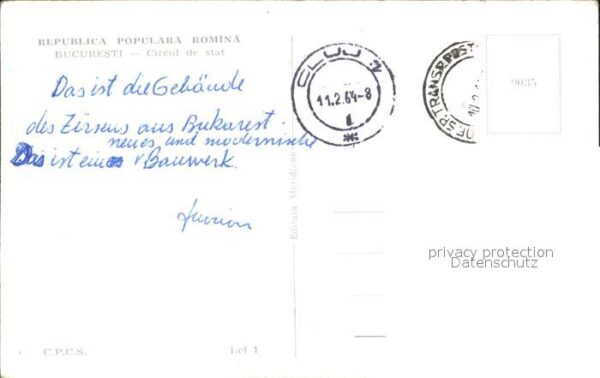 REPUBLICA POPULARĂ ROMÎNĂ
BUCUREȘTI — Circul de stat
Das ist die Gebäude
des Zirkus aus Bukarest.
neues und modernische
Das ist eines Bauwerk.
CLUJ
11.2.64-8
1
*
TRANSP. POST
9035
Editura Meridiane
privacy protection
Datenschutz
C.P.C.S.
Lei 1